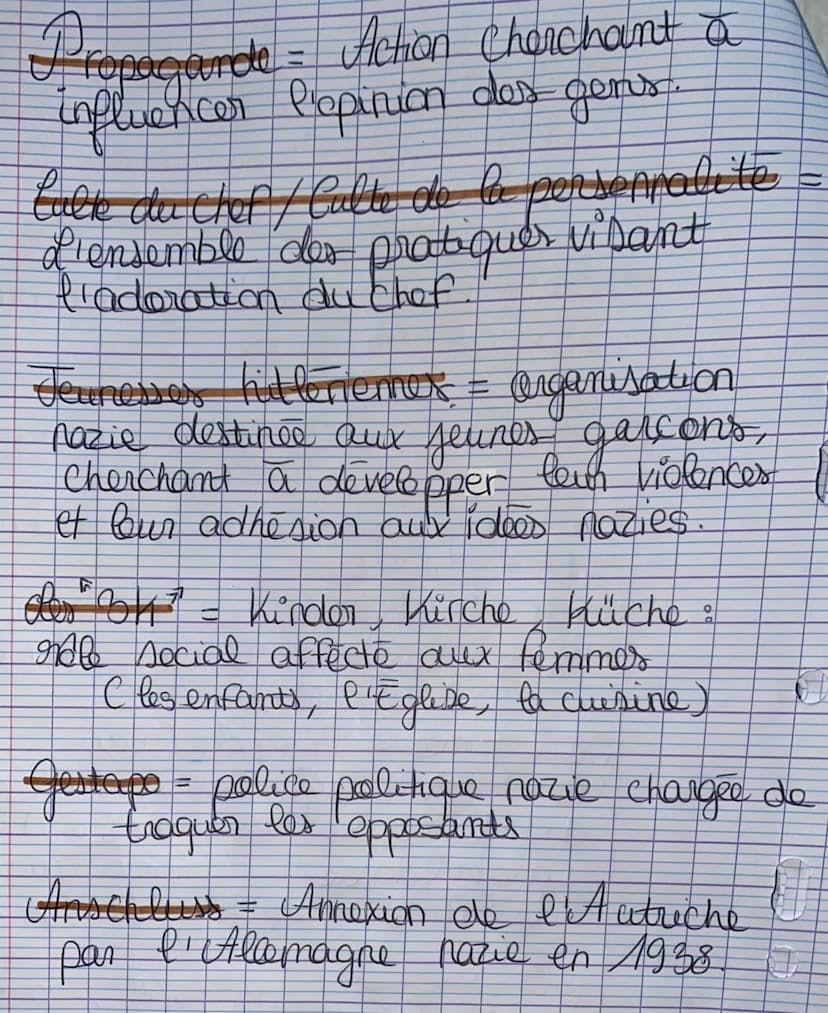 Propagande = Action cherchant à
influencer l'opinion des gens.
Culte du chef / Culte de la personnalité =
L'ensemble des pratiques visant
l'adoration du chef.
Jeunesses hitlériennes = organisation
nazie destinée aux jeunes garçons,
cherchant à développer leur violences
et leur adhésion aux idées nazies.
des "3K" = Kinder, Kirche, Küche :
rôle social affecté aux femmes
(les enfants, l'Église, la cuisine)
Gestapo = police politique nazie chargée de
traquer les opposants
Anschluss = Annexion de l'Autriche
par l'Allemagne nazie en 1938.